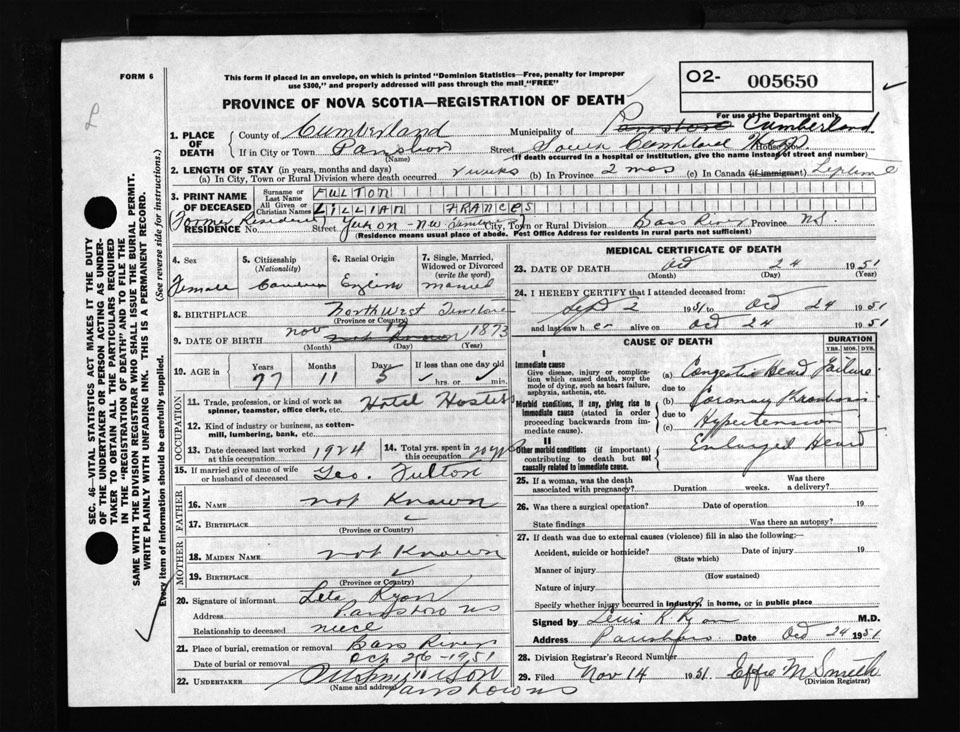 FORM 6
This form if placed in an envelope, on which is printed "Dominion Statistics—Free, penalty for improper
use $300," and properly addressed will pass through the mail "FREE"
O2- 005650
For use of the Department only.
PROVINCE OF NOVA SCOTIA—REGISTRATION OF DEATH
1. PLACE OF DEATH
County of Cumberland Municipality of Parrsboro Cumberland
If in City or Town Parrsboro Street South Cumberland House No.
(Name) (If death occurred in a hospital or institution, give the name instead of street and number)
2. LENGTH OF STAY (in years, months and days)
(a) In City, Town or Rural Division where death occurred 2 weeks (b) In Province 2 mos (c) In Canada (if immigrant) Lifetime
3. PRINT NAME OF DECEASED
Surname or Last Name FULTON
All Given or Christian Names LILLIAN FRANCES
(Former Residence
RESIDENCE No. Street City, Town or Rural Division Bass River Province N.S.
(Residence means usual place of abode. Post Office Address for residents in rural parts not sufficient)
4. Sex 5. Citizenship (Nationality) 6. Racial Origin 7. Single, Married, Widowed or Divorced (write the word)
Female Canadian English married
8. BIRTHPLACE North West
(Province or Country)
9. DATE OF BIRTH Nov 1873
(Month) (Day) (Year)
10. AGE in Years Months Days If less than one day old
77 11 5 hrs. or min.
OCCUPATION
11. Trade, profession, or kind of work as spinner, teamster, office clerk, etc. Hotel Hostess
12. Kind of industry or business, as cotton-mill, lumbering, bank, etc.
13. Date deceased last worked at this occupation 1924 14. Total yrs. spent in this occupation 20 yrs
15. If married give name of wife or husband of deceased Geo. Fulton
FATHER
16. NAME not Known
17. BIRTHPLACE
(Province or Country)
MOTHER
18. MAIDEN NAME not Known
19. BIRTHPLACE
(Province or Country)
20. Signature of informant Leta Ryan
Address Parrsboro NS
Relationship to deceased niece
21. Place of burial, cremation or removal Bass River
Date of burial or removal Oct 26-1951
22. UNDERTAKER
(Name and address) Parrsboro NS
MEDICAL CERTIFICATE OF DEATH
23. DATE OF DEATH Oct 24 1951
(Month) (Day) (Year)
24. I HEREBY CERTIFY that I attended deceased from:
Sept 2 1951 to Oct 24 1951
and last saw her alive on Oct 24 1951
CAUSE OF DEATH
DURATION
YRS. MOS. DYS.
I
Immediate cause
Give disease, injury or complication which caused death, NOT the mode of dying, such as heart failure, asphyxia, asthenia, etc.
(a) Congestive Heart Failure
due to
Morbid conditions, if any, giving rise to immediate cause (stated in order proceeding backwards from immediate cause).
(b) Coronary Thrombosis
due to
(c) Hypertension
II
Other morbid conditions (if important) contributing to death but not causally related to immediate cause.
Enlarged Heart
25. If a woman, was the death associated with pregnancy? Duration weeks. Was there a delivery?
26. Was there a surgical operation? Date of operation 19
State findings Was there an autopsy?
27. If death was due to external causes (violence) fill in also the following:—
Accident, suicide or homicide? Date of injury 19
(State which)
Manner of injury
(How sustained)
Nature of injury
Specify whether injury occurred in industry, in home, or in public place
Signed by R Ryan M.D.
Address Parrsboro Date Oct 24 1951
28. Division Registrar's Record Number
29. Filed Nov 14 1951. Effie M Smith
(Division Registrar)
SEC. 46—VITAL STATISTICS ACT MAKES IT THE DUTY
OF THE UNDERTAKER OR PERSON ACTING AS UNDER-
TAKER TO OBTAIN ALL THE PARTICULARS REQUIRED
IN THE "REGISTRATION OF DEATH" AND TO FILE THE
SAME WITH THE DIVISION REGISTRAR WHO SHALL ISSUE THE BURIAL PERMIT.
WRITE PLAINLY WITH UNFADING INK. THIS IS A PERMANENT RECORD.
Every item of information should be carefully supplied. (See reverse side for instructions.)